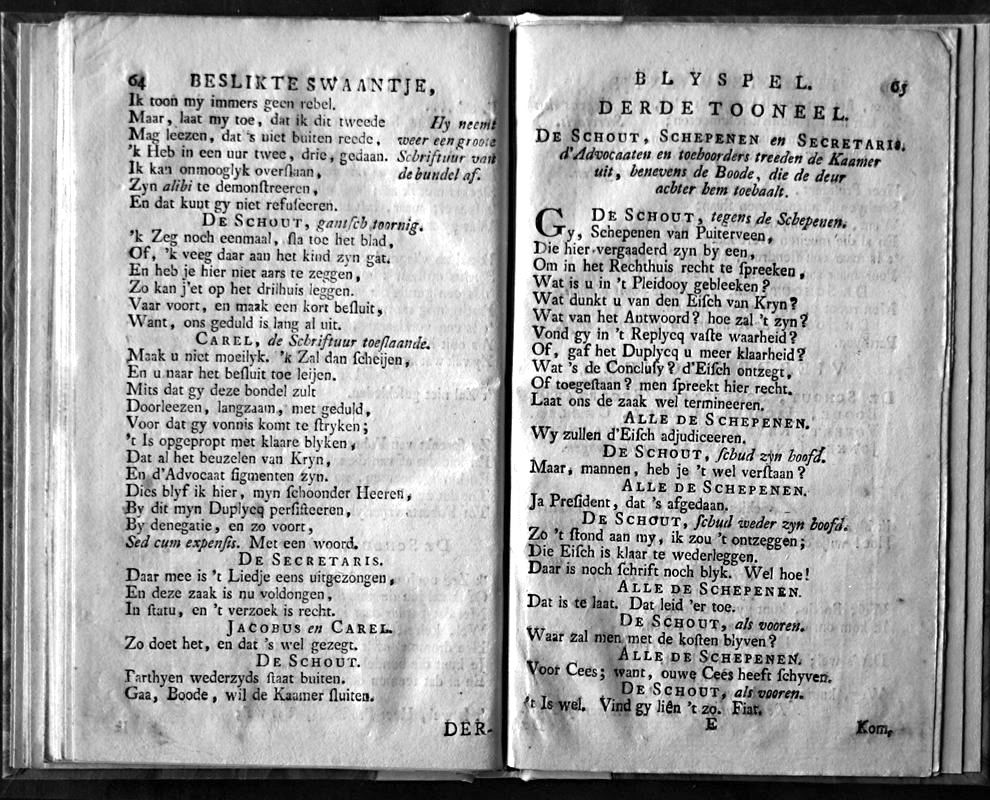 64 BESLIKTE SWAANTJE,
Ik toon my immers geen rebel.
Maar, laat my toe, dat ik dit tweede Hy neemt
Mag leezen, dat 's niet buiten reede, weer een groote
'k Heb in een uur twee, drie, gedaan. Schriftuur van
Ik kan onmooglyk overſlaan, de bundel af.
Zyn alibi te demonſtreeren,
En dat kunt gy niet refuſeeren.
DE SCHOUT, gantſch toornig.
'k Zeg noch eenmaal, ſla toe het blad,
Of, 'k veeg daar aan het kind zyn gat.
En heb je hier niet aars te zeggen,
Zo kan j'et op het drilhuis leggen.
Vaar voort, en maak een kort beſluit,
Want, ons geduld is lang al uit.
CAREL, de Schriftuur toeſlaande.
Maak u niet moeilyk. 'k Zal dan ſcheijen,
En u naar het beſluit toe leijen.
Mits dat gy deze bondel zult
Doorleezen, langzaam, met geduld,
Voor dat gy vonnis komt te ſtryken;
't Is opgepropt met klaare blyken,
Dat al het beuzelen van Kryn,
En d'Advocaat figmenten zyn.
Dies blyf ik hier, myn ſchoonder Heeren,
By dit myn Duplycq perſiſteeren,
By denegatie, en zo voort,
Sed cum expenſis. Met een woord.
DE SECRETARIS.
Daar mee is 't Liedje eens uitgezongen,
En deze zaak is nu voldongen,
In ſtatu, en 't verzoek is recht.
JACOBUS en CAREL.
Zo doet het, en dat 's wel gezegt.
DE SCHOUT.
Parthyen wederzyds ſtaat buiten.
Gaa, Boode, wil de Kaamer ſluiten.
DER-
BLYSPEL. 65
DERDE TOONEEL.
DE SCHOUT, SCHEPENEN en SECRETARIS.
d'Advocaaten en toehoorders treeden de Kaamer
uit, benevens de Boode, die de deur
achter hem toehaalt.
DE SCHOUT, tegens de Schepenen.
Gy, Schepenen van Puiterveen,
Die hier vergaaderd zyn by een,
Om in het Rechthuis recht te ſpreeken,
Wat is u in 't Pleidooy gebleeken?
Wat dunkt u van den Eiſch van Kryn?
Wat van het Antwoord? hoe zal 't zyn?
Vond gy in 't Replycq vaſte waarheid?
Of, gaf het Duplycq u meer klaarheid?
Wat 's de Concluſy? d'Eiſch ontzegt,
Of toegeſtaan? men ſpreekt hier recht.
Laat ons de zaak wel termineeren.
ALLE DE SCHEPENEN.
Wy zullen d'Eiſch adjudiceeren.
DE SCHOUT, ſchud zyn hoofd.
Maar, mannen, heb je 't wel verſtaan?
ALLE DE SCHEPENEN.
Ja Preſident, dat 's afgedaan.
DE SCHOUT, ſchud weder zyn hoofd.
Zo 't ſtond aan my, ik zou 't ontzeggen;
Die Eiſch is klaar te wederleggen.
Daar is noch ſchrift noch blyk. Wel hoe!
ALLE DE SCHEPENEN.
Dat is te laat. Dat leid 'er toe.
DE SCHOUT, als vooren.
Waar zal men met de koſten blyven?
ALLE DE SCHEPENEN.
Voor Cees; want, ouwe Cees heeft ſchyven.
DE SCHOUT, als vooren.
't Is wel. Vind gy liên 't zo. Fiat.
E Kom,